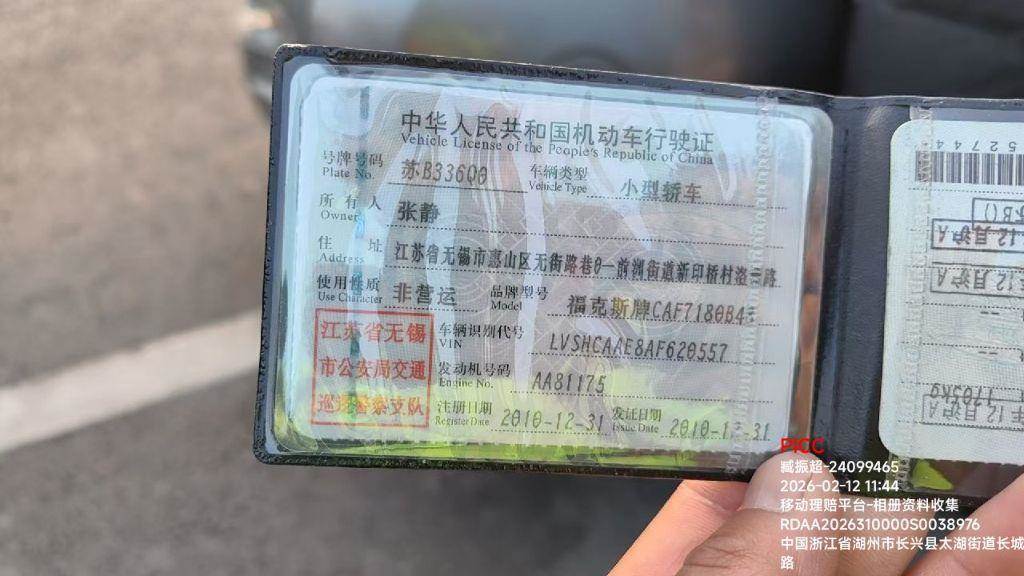 中华人民共和国机动车行驶证
Vehicle License of the People's Republic of China
号牌号码 苏B33600 车辆类型 小型轿车
Plate No. Vehicle Type
所有人 张静
Owner
住址 江苏省无锡市惠山区无街路巷0一前洲街道新印桥村
Address
使用性质 非营运 品牌型号 福克斯牌CAF7180B4
Use Character Model
江苏省无锡
市公安局交通
巡逻警察支队
车辆识别代号 LVSHCAAE8AF620557
VIN
发动机号码 AA81175
Engine No.
注册日期 2010-12-31 发证日期 2010-12-31
Register Date Issue Date
52744
PICC
臧振超-24099465
2026-02-12 11:44
移动理赔平台-相册资料收集
RDAA2026310000S0038976
中国浙江省湖州市长兴县太湖街道长城
路